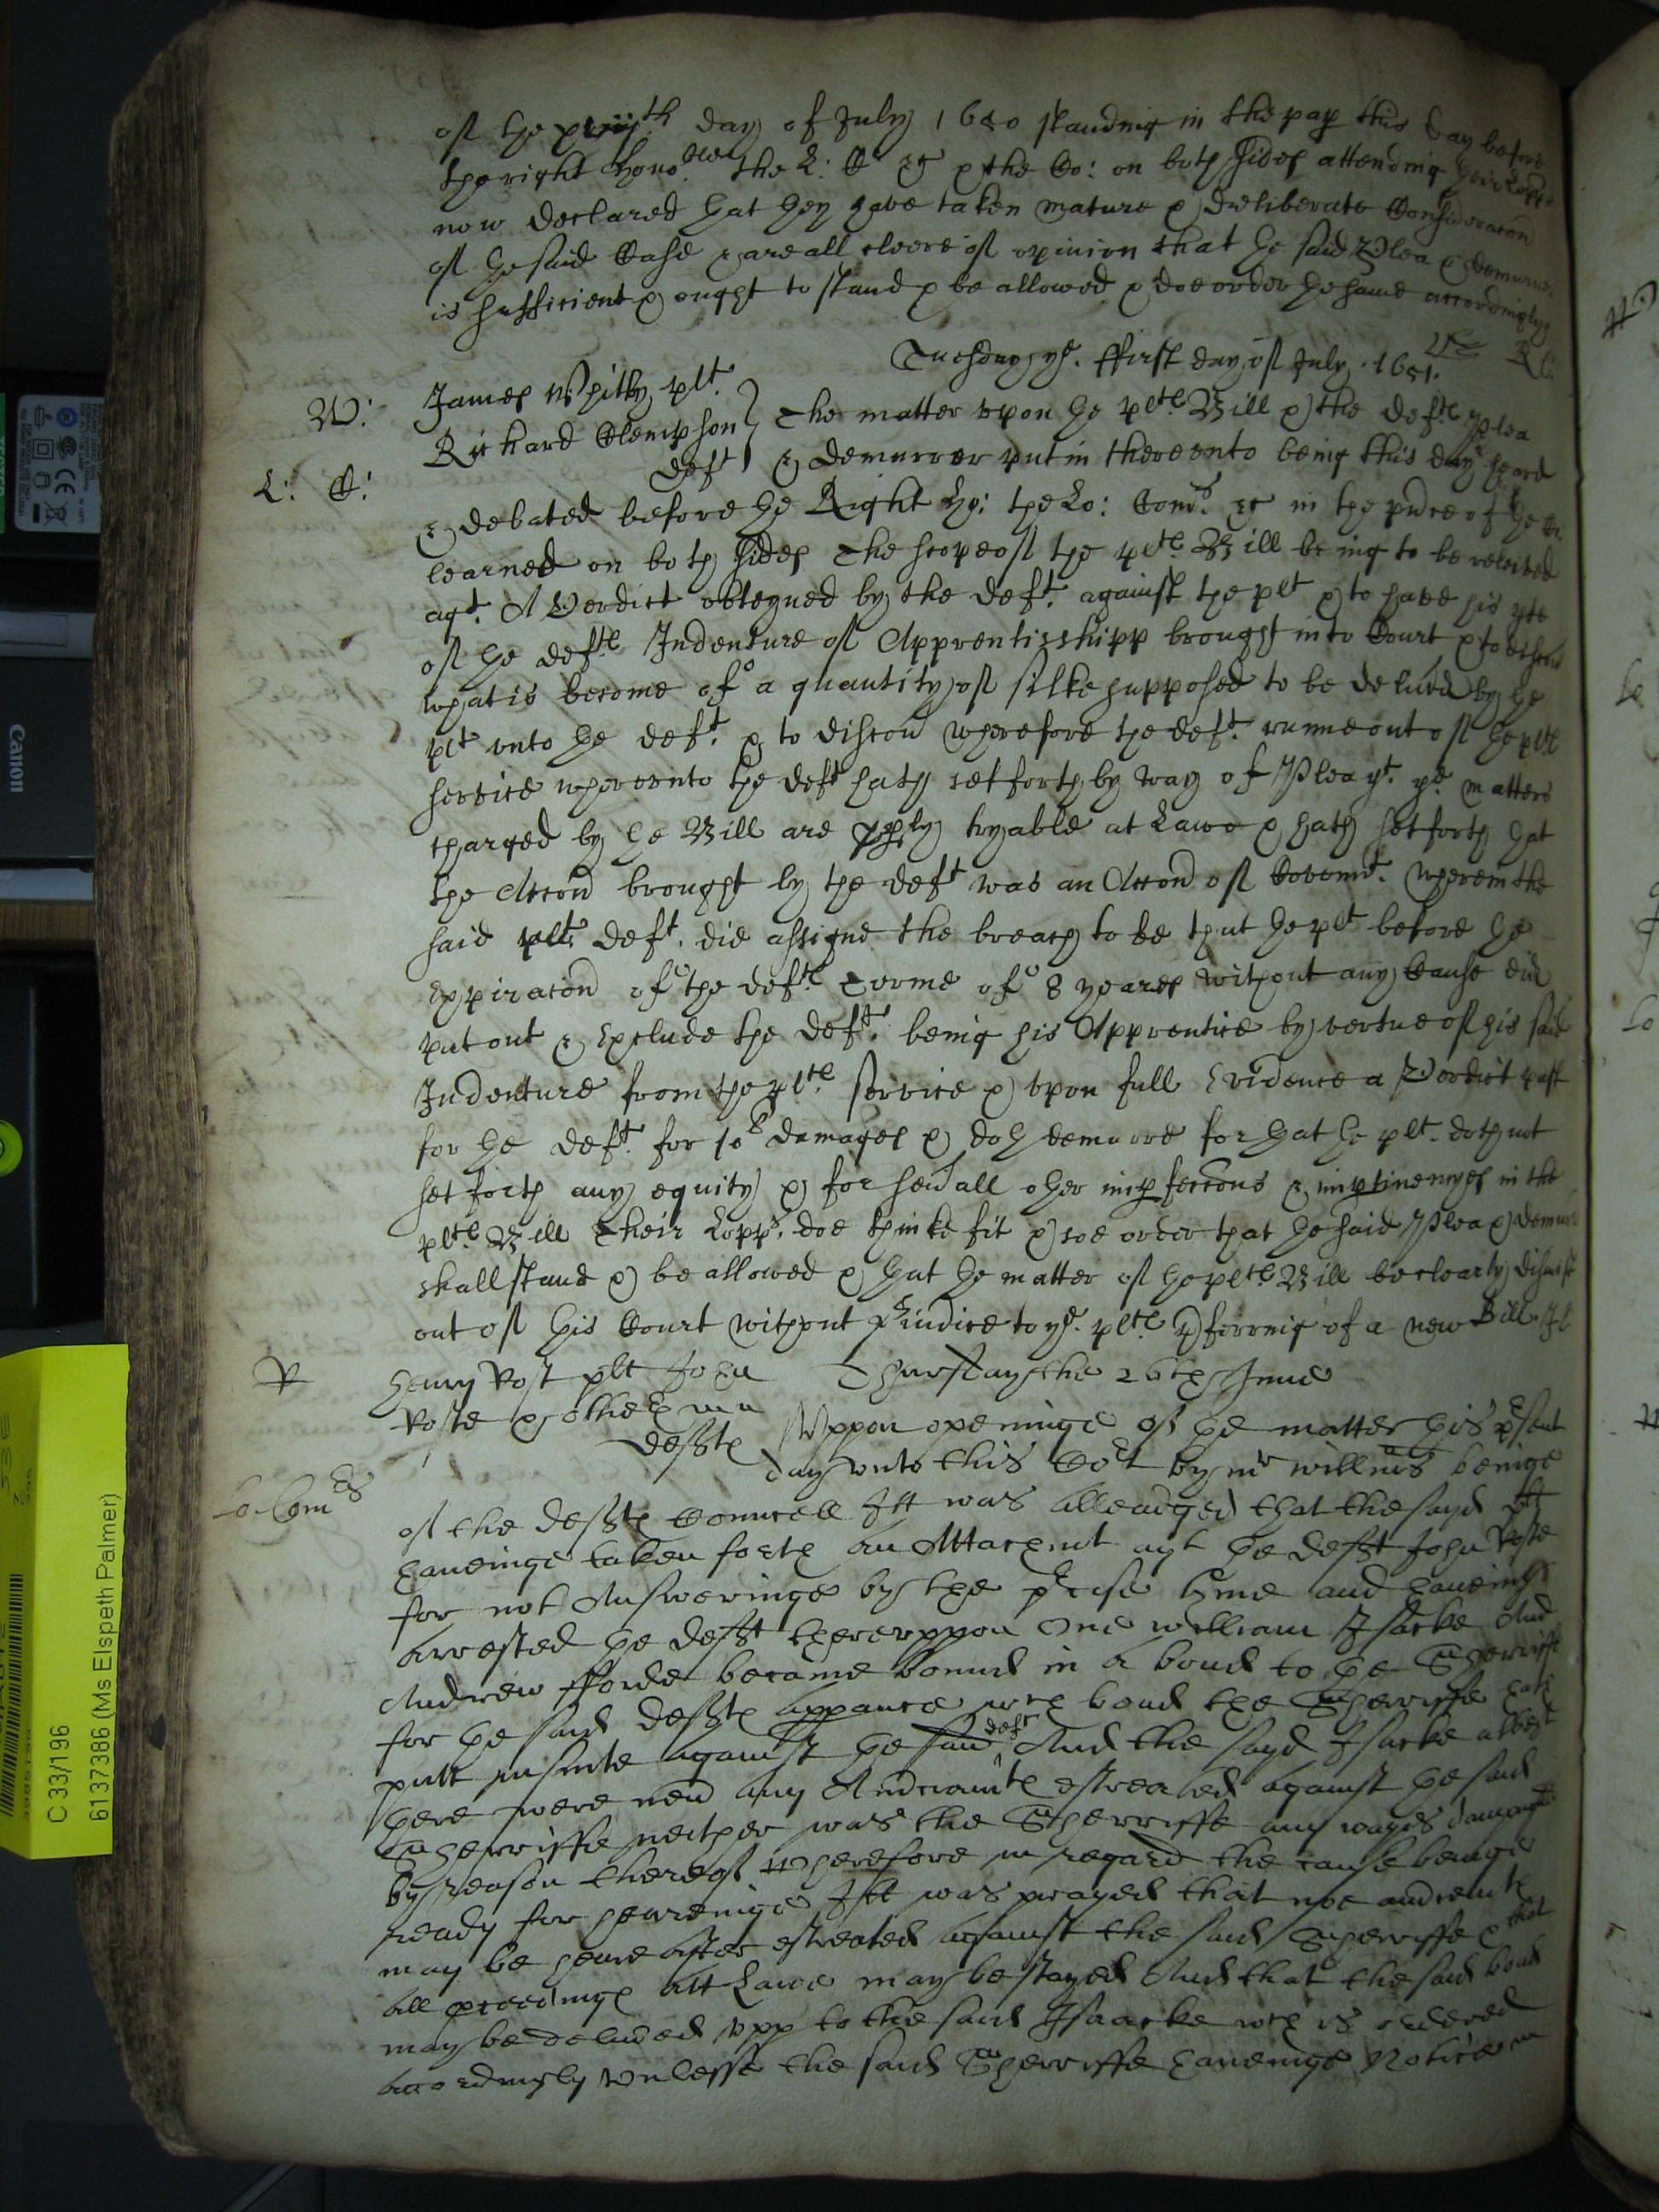 of the xviijth day of July 1650 standing in the pap this day before
the right Hono:ble the L: C: &c & the Co: on both sides attending their Lopps
now declared that they have taken mature & deliberate Consideracon
of the said Case & are all cleere of opinion that the said Plea & demurrer
is sufficient & ought to stand & be allowed & doe order the same accordingly
Tuesday ye. ffirst day of July. 1651.
W: James Whitby plt
Richard Clempson
Deft
The matter vpon the plts Bill & the Defts plea
& demurrer put in therevnto being this day heard
L: C: & debated before the Right Ho: the Lo: Comrs. &c in the pnce of the Co.
learned on both sides The scope of the plts Bill being to be releived
agt. A Verdict obteyned by the Deft. against the plt & to have his pte
of the Defts Indenture of Apprentisshipp brought into Court & to discou
what is become of a quantity of silke supposed to be delivd by the
plt vnto the deft. & to discou wherefore the deft. runne out of the plts
service wherevnto the deft hath set forth by way of Plea yt. ye matters
charged by the Bill are pply tryable at Lawe & hath set forth that
the Accon brought by the deft was an Accon of Covent. wherein the
said deft. did assigne the breach to be that the plt before the
Expiracon of the defts Terme of 8 yeares without any Cause did
put out & Exclude the Deft. being his Apprentice by vertue of his said
Indenture from the plts service & vpon full Evidence a Verdict past
for the Deft. for 10l damages & doth demurre for that the plt. doth not
set forth any equity & for seuall other impfeccons & imptinencyes in the
plts Bill Their Lopps. doe thinke fit & soe order that the said Plea & demurr
shall stand & be allowed & that the matter of the plts Bill be clearly dismist
out of this Court without piudice to ye. plts pferring of a new Bill.
V Henry Vost plt John
Voste & other
Defts
Thursday the 26th June
Vppon openinge of the matter this psent
day vnto this Cort by mr willms beinge
Lo: Comrs of the Defts Councell Itt was Alleadged that the sayd plt
haueinge taken forth an Attachmt agt the Deft John Voste
for not Answeringe by the pcise tyme and haueinge
Arrested the deft therevppon One william Isacke And
Andrew fforde became bound in a bond to the Sherriffe
for the said Defts appance wch bond the Sherriffe hath
putt in suite against the said deft And the sayd Isacke
there were neu any Amciamts estreated against the said
Sherriffe neither was the Sherriffe any wayes
by reason thereof Wherefore in regard the cause beinge
ready for heareinge Itt was prayed that noe amciamts
may be heareafter estreated against the said Sherriffe & that
all pceedings Att Lawe may be stayed And that the said bond
may be deliued vpp to the said Isaacke wch is ordered
accordingly vnlesse the said Sherriffe haueinge Notice
Canon
C 33/196
6137386 (Ms Elspeth Palmer)